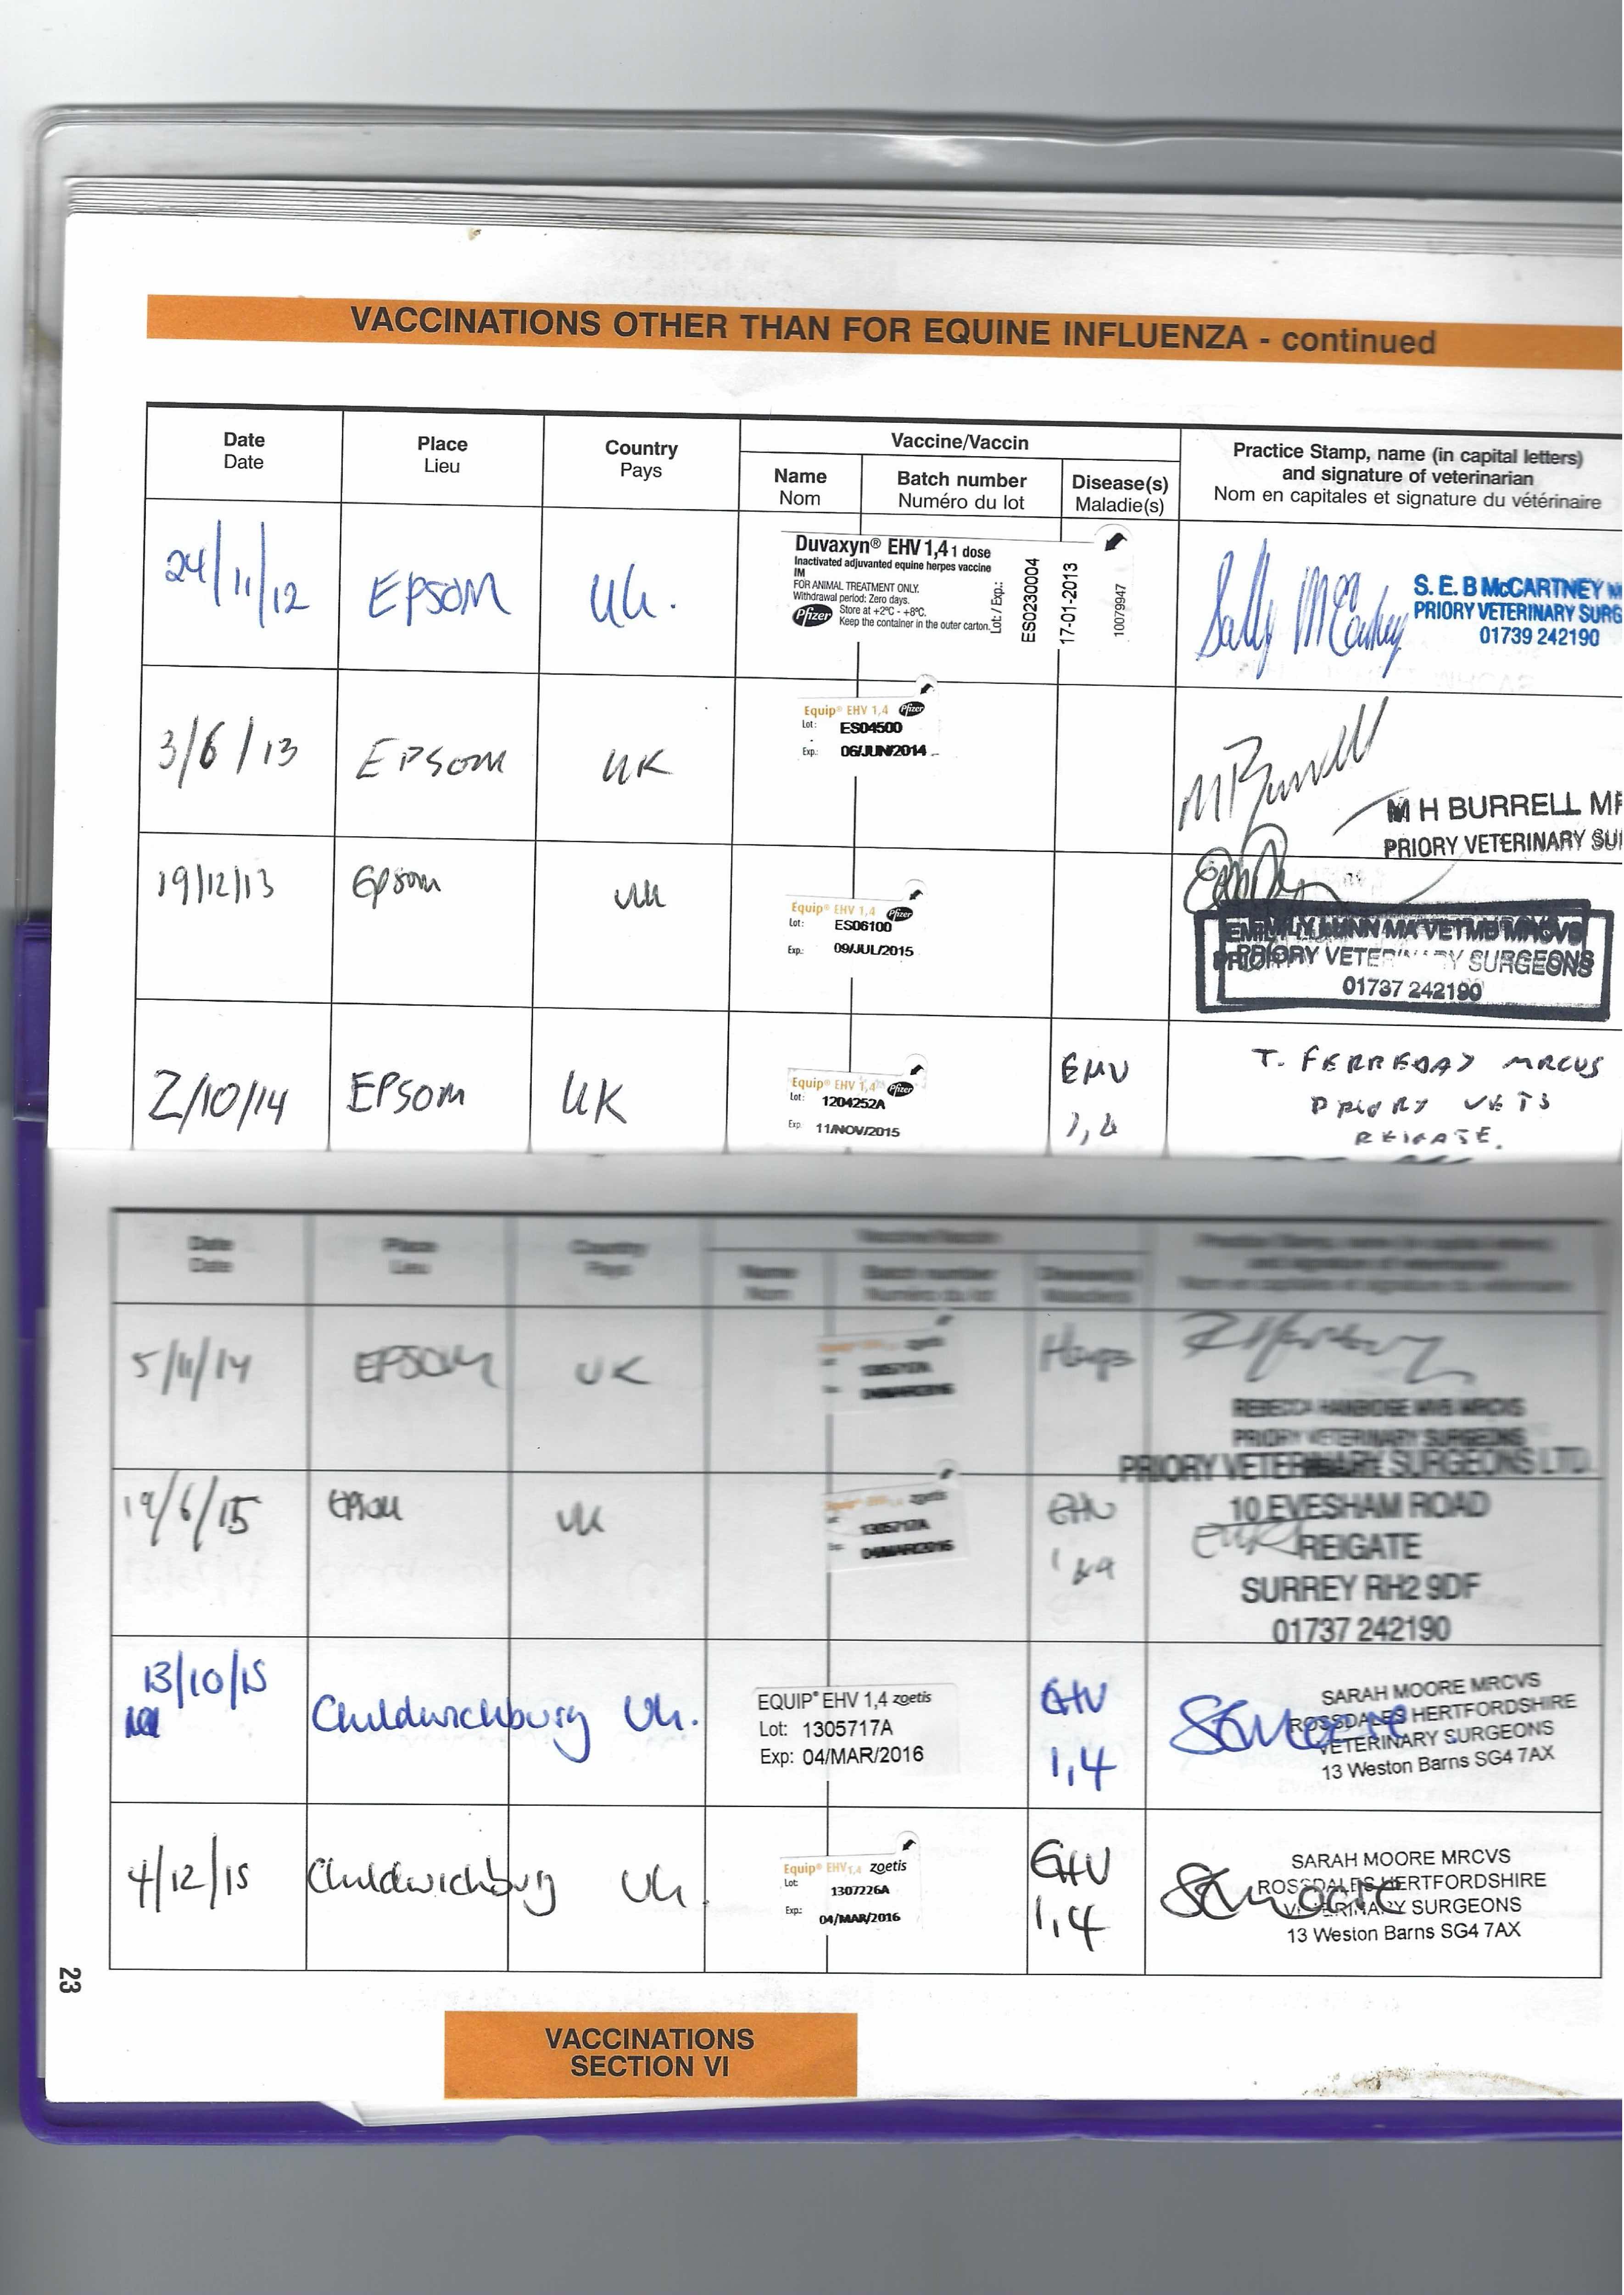 VACCINATIONS OTHER THAN FOR EQUINE INFLUENZA - continued
Date
Date
Place
Lieu
Country
Pays
Vaccine/Vaccin
Name
Nom
Batch number
Numéro du lot
Disease(s)
Maladie(s)
Practice Stamp, name (in capital letters)
and signature of veterinarian
Nom en capitales et signature du vétérinaire
24/11/12
EPSOM
Uk.
Duvaxyn® EHV 1,4 1 dose
Inactivated adjuvanted equine herpes vaccine
IM
FOR ANIMAL TREATMENT ONLY.
Withdrawal period: Zero days.
Pfizer
Store at +2°C - +8°C.
Keep the container in the outer carton.
Lot / Exp.:
ES0230004
17-01-2013
10079947
Sally McCartney
S. E. B McCARTNEY M
PRIORY VETERINARY SURG
01739 242190
3/6/13
EPSOM
UK
Equip® EHV 1,4 Pfizer
Lot: ES04500
Exp.: 06/JUN/2014
M Burrell
M H BURRELL MR
PRIORY VETERINARY SUR
19/12/13
Epsom
Uk
Equip® EHV 1,4 Pfizer
Lot: ES06100
Exp.: 09/JUL/2015
EMILY MA VETMB MRCVS
PRIORY VETERINARY SURGEONS
01737 242190
2/10/14
EPSOM
UK
Equip® EHV 1,4 Pfizer
Lot: 1204252A
Exp. 11/NOV/2015
EHV
1,4
T. FERREDAY MRCVS
PRIORY VETS
REIGATE.
Date
Date
Place
Lieu
Country
Pays
Vaccine/Vaccin
Name
Nom
Batch number
Numéro du lot
Disease(s)
Maladie(s)
Practice Stamp, name (in capital letters)
and signature of veterinarian
Nom en capitales et signature du vétérinaire
5/11/14
EPSOM
UK
zoetis
1305717A
04/MAR/2016
Herpes
REBECCA MRCVS
PRIORY VETERINARY SURGEONS
PRIORY VETERINARY SURGEONS LTD.
19/6/15
Epsom
UK
Equip® EHV 1,4 zoetis
1305717A
04/MAR/2016
EHV
1 & 4
10 EVESHAM ROAD
REIGATE
SURREY RH2 9DF
01737 242190
13/10/15
Childwickbury
Uk.
EQUIP® EHV 1,4 zoetis
Lot: 1305717A
Exp: 04/MAR/2016
EHV
1,4
SMoore
SARAH MOORE MRCVS
ROSSDALES HERTFORDSHIRE
VETERINARY SURGEONS
13 Weston Barns SG4 7AX
4/12/15
Childwickbury
Uk.
Equip® EHV 1,4 zoetis
Lot: 1307226A
Exp.: 04/MAR/2016
EHV
1,4
SMoore
SARAH MOORE MRCVS
ROSSDALES HERTFORDSHIRE
VETERINARY SURGEONS
13 Weston Barns SG4 7AX
23
VACCINATIONS
SECTION VI